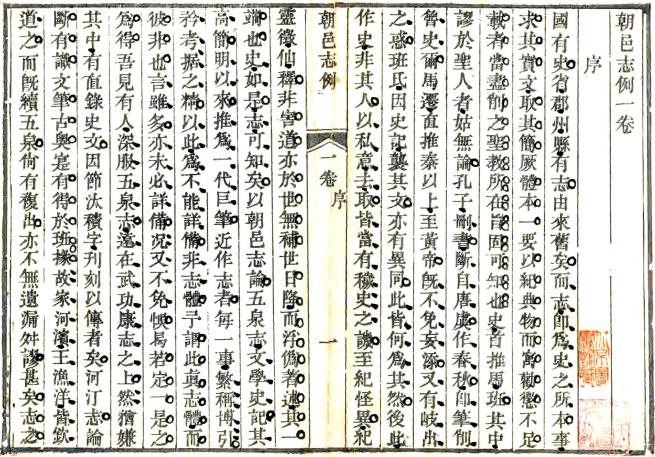 朝邑志例一卷
序
國有史省郡州縣有志由來舊矣而志即爲史之所本事
求其實文取其簡厥體本一要以紀典物而寓勸懲不足
載者當盡削之聖教所在旨固可知也史首推馬班其中
謬於聖人者姑無論孔子刪書斷自唐虞作春秋即筆削
魯史爾馬遷直推秦以上至黃帝既不免妄添又有歧出
之惑班氏因史記襲其文亦有異同此皆何爲其然後此
作史非其人以私意去取皆當有穢史之譏至紀怪異紀
朝邑志例
一卷 序
一
靈徵仙釋非害道亦於世無補世日降而浮僞著述其一
端也史如是志可知矣以朝邑志論五泉志文學史記其
高簡明以來推爲一代巨筆近作志者每一事繁稱博引
矜考據之精以此爲不能詳備非志體予謂此真志體而
彼非也言雖多亦未必詳備況又不免悞易若定一是之
爲得吾見有人深服五泉志遠在武功康志之上然猶嫌
其中有直錄史文因節汰積字刋刻以傳者矣河汀志論
斷有識文筆古奧寔有得於班掾故家河濱王漁洋皆欽
道之而既續五泉尙有複出亦不無遺漏舛謬甚矣志之